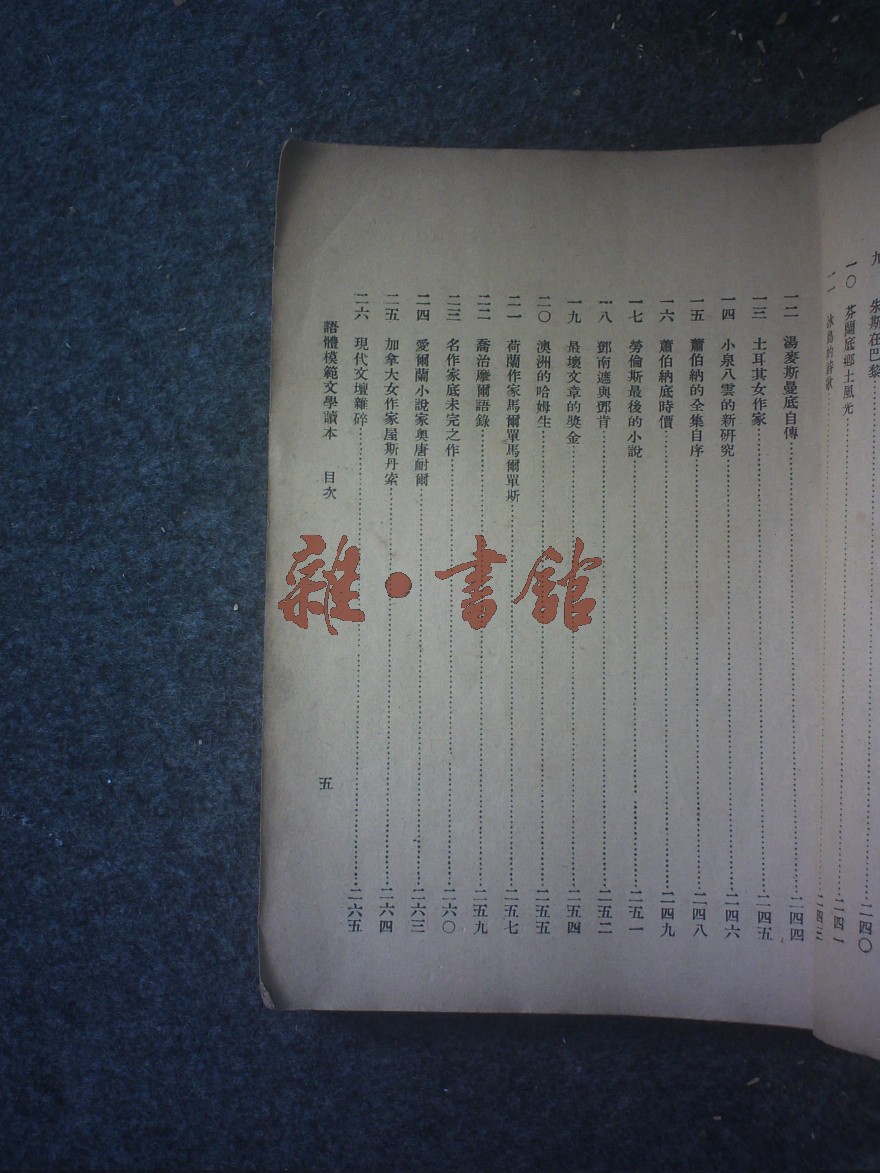 朱斯在巴黎……二四〇
一〇 芬蘭底鄉土風光……二四一
二四三
一二 湯麥斯曼底自傳……二四四
一三 土耳其女作家……二四五
一四 小泉八雲的新研究……二四六
一五 蕭伯納的全集自序……二四八
一六 蕭伯納底時價……二四九
一七 勞倫斯最後的小說……二五一
一八 鄧南遮與鄧肯……二五二
一九 最壞文章的獎金……二五四
二〇 澳洲的哈姆生……二五五
二一 荷蘭作家馬爾單馬爾單斯……二五七
二二 喬治摩爾語錄……二五九
二三 名作家底未完之作……二六〇
二四 愛爾蘭小說家奧唐耐爾……二六三
二五 加拿大女作家屋斯丹索……二六四
二六 現代文壇雜碎……二六五
語體模範文學讀本 目次 五
雜·書館